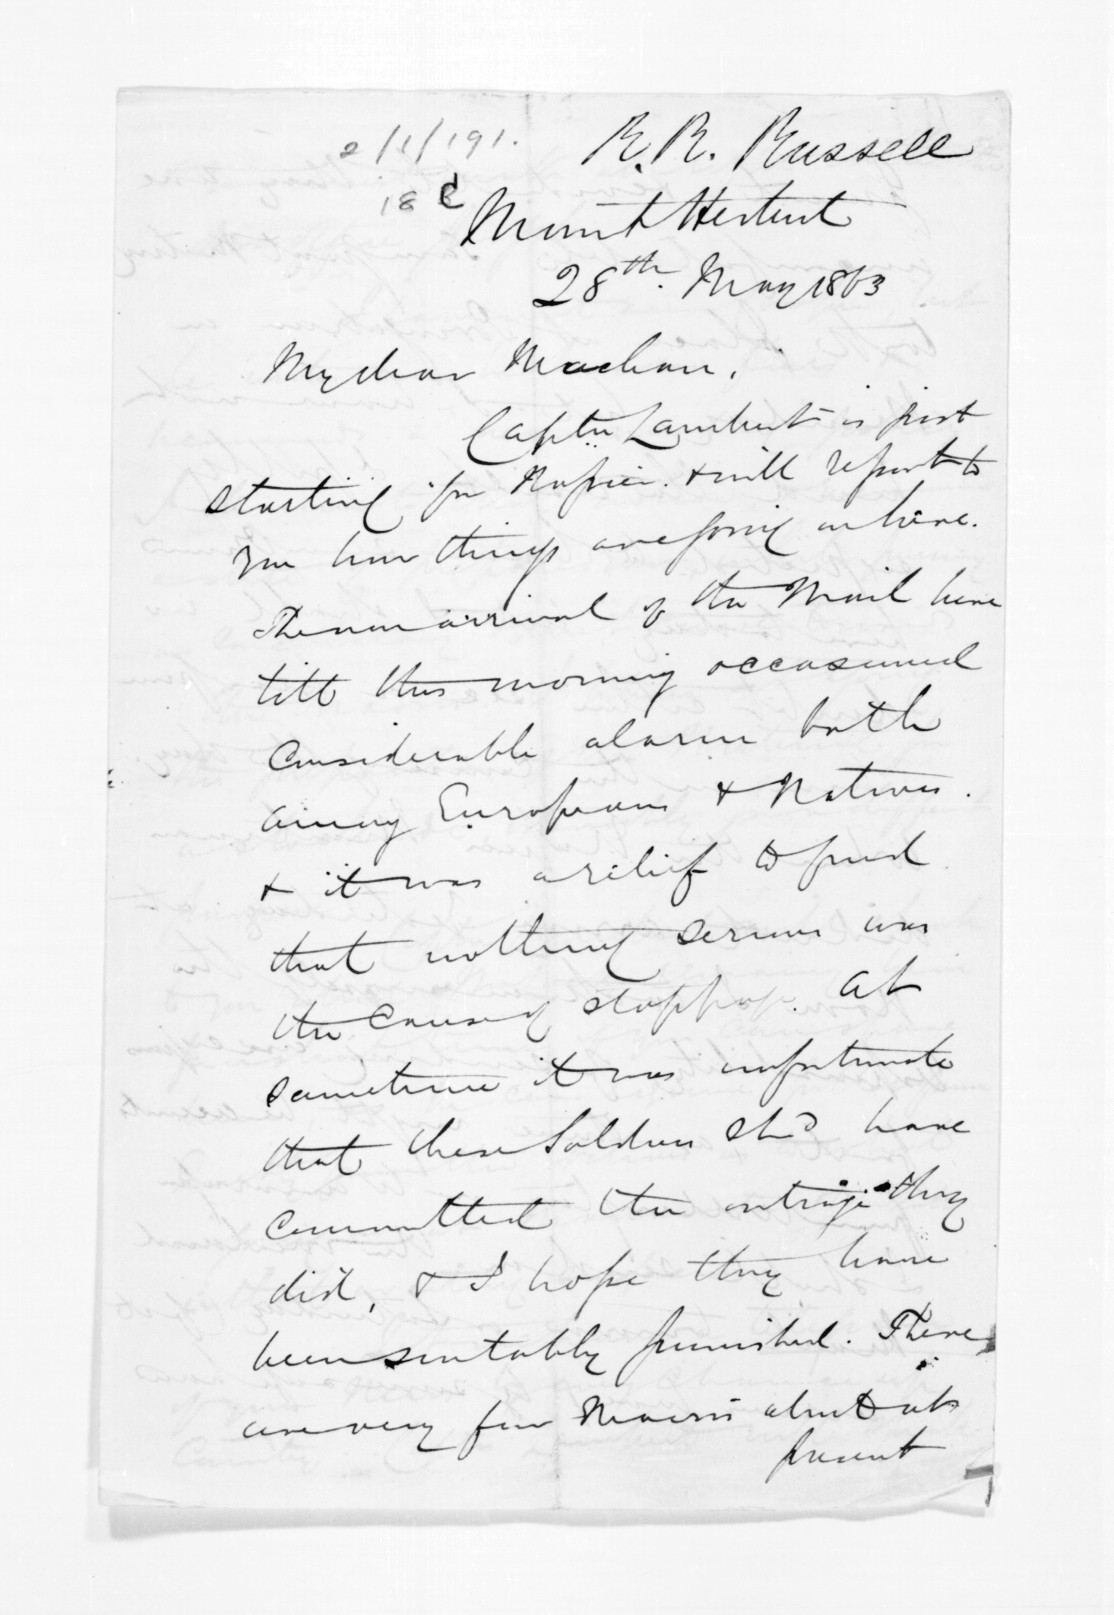 2/1/191.
18 d
R. R. Russell
Mount Herbert
28th. May 1863
My dear Maclean,
Captn Lambert is just
starting for Napier. & will report to
you how things are going on here.
The non arrival of the Mail here
till this morning occasioned
considerable alarm both
among Europeans & Natives.
& it was a relief to find
that nothing serious was
the cause of stoppage. At
sametime it was unfortunate
that these Soldiers shd have
committed the outrage they
did, & I hope they have
been suitably punished. There
are very few Maoris about at
present